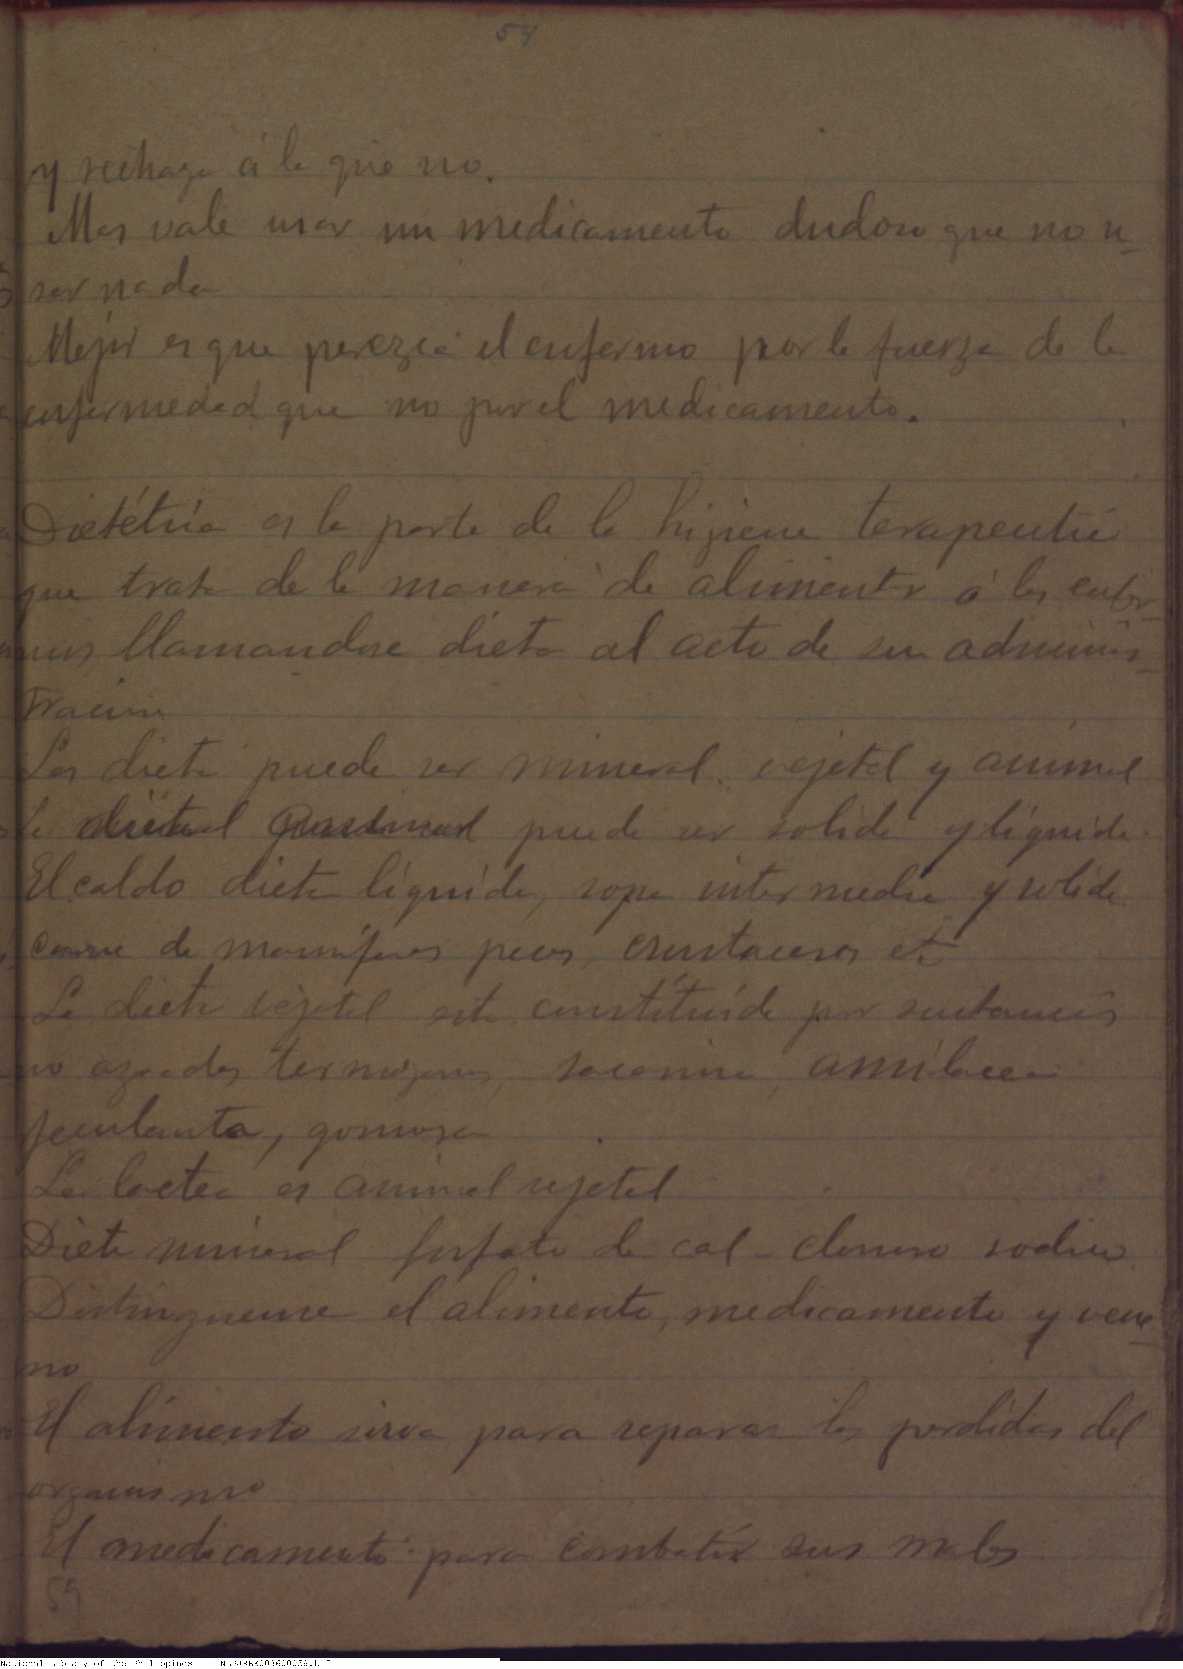 54
y rechaza á lo que no.
Mas vale usar un medicamento dudoso que no u-
sar nada
Mejor es que perezca el enfermo por la fuerza de la
enfermedad que no por el medicamento.
Dietética es la parte de la higiene terapeutic
que trata de la manera de alimentar á los enfer-
mos, llamandose dieta al acto de su adminis-
tracion
Las dieta puede ser mineral, vejetal y animal
La puede ser solida y liquida.
El caldo dieta liquida, sopa intermedia y solida
carne de mamiferos peces, crustaceos etc
La dieta vejetal esta constituida por sustancias
no azoadas termogenas, sacarina, amilacea
feculenta, gomosa
La lactea es animal vejetal
Dieta mineral fosfato de cal - cloruro sodico
Distinguense el alimento, medicamento y vene-
no
El alimento sirva para reparar las perdidas del
organismo
El medicamento para combatir sus males
54